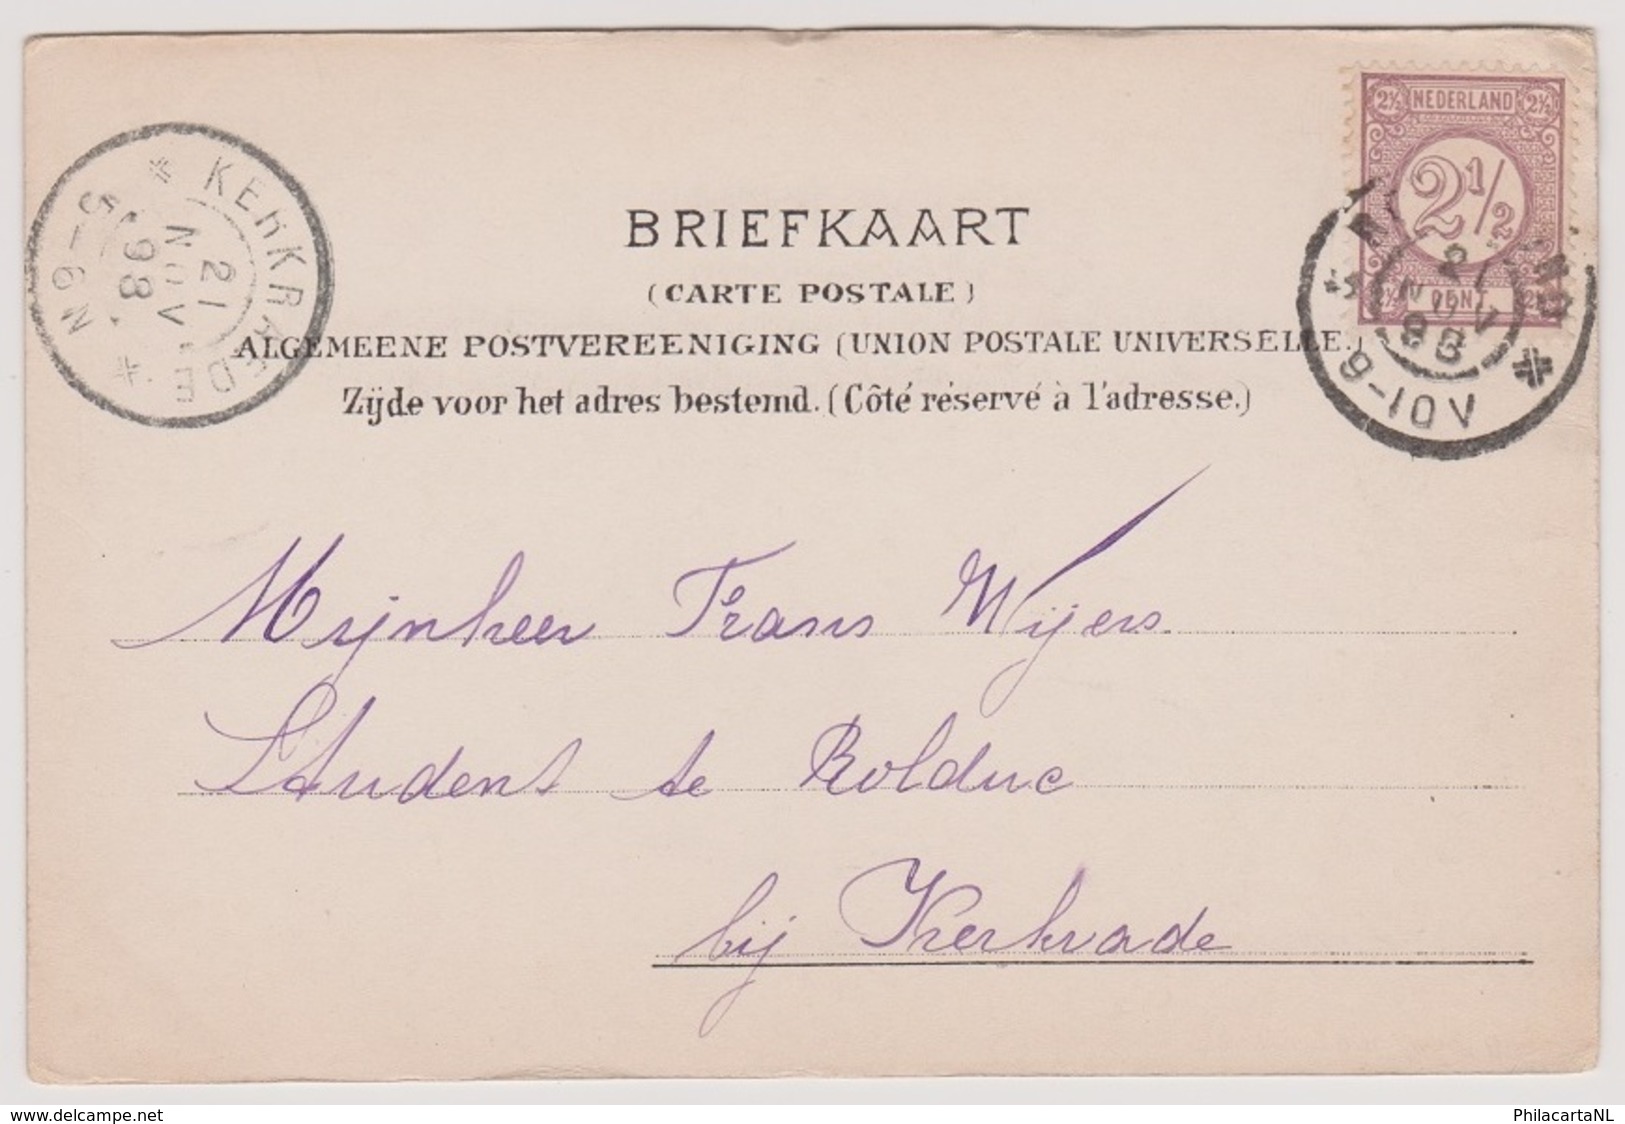 2½ NEDERLAND 2½
2½
CENT
21
NOV
98
9-10V
KERKRADE
21
NOV
98
5-6N
BRIEFKAART
(CARTE POSTALE)
ALGEMEENE POSTVEREENIGING (UNION POSTALE UNIVERSELLE.)
Zijde voor het adres bestemd. (Côté réservé à l'adresse.)
Mijnheer Frans Wijers
Student te Rolduc
bij Kerkrade
www.delcampe.net
PhilacartaNL